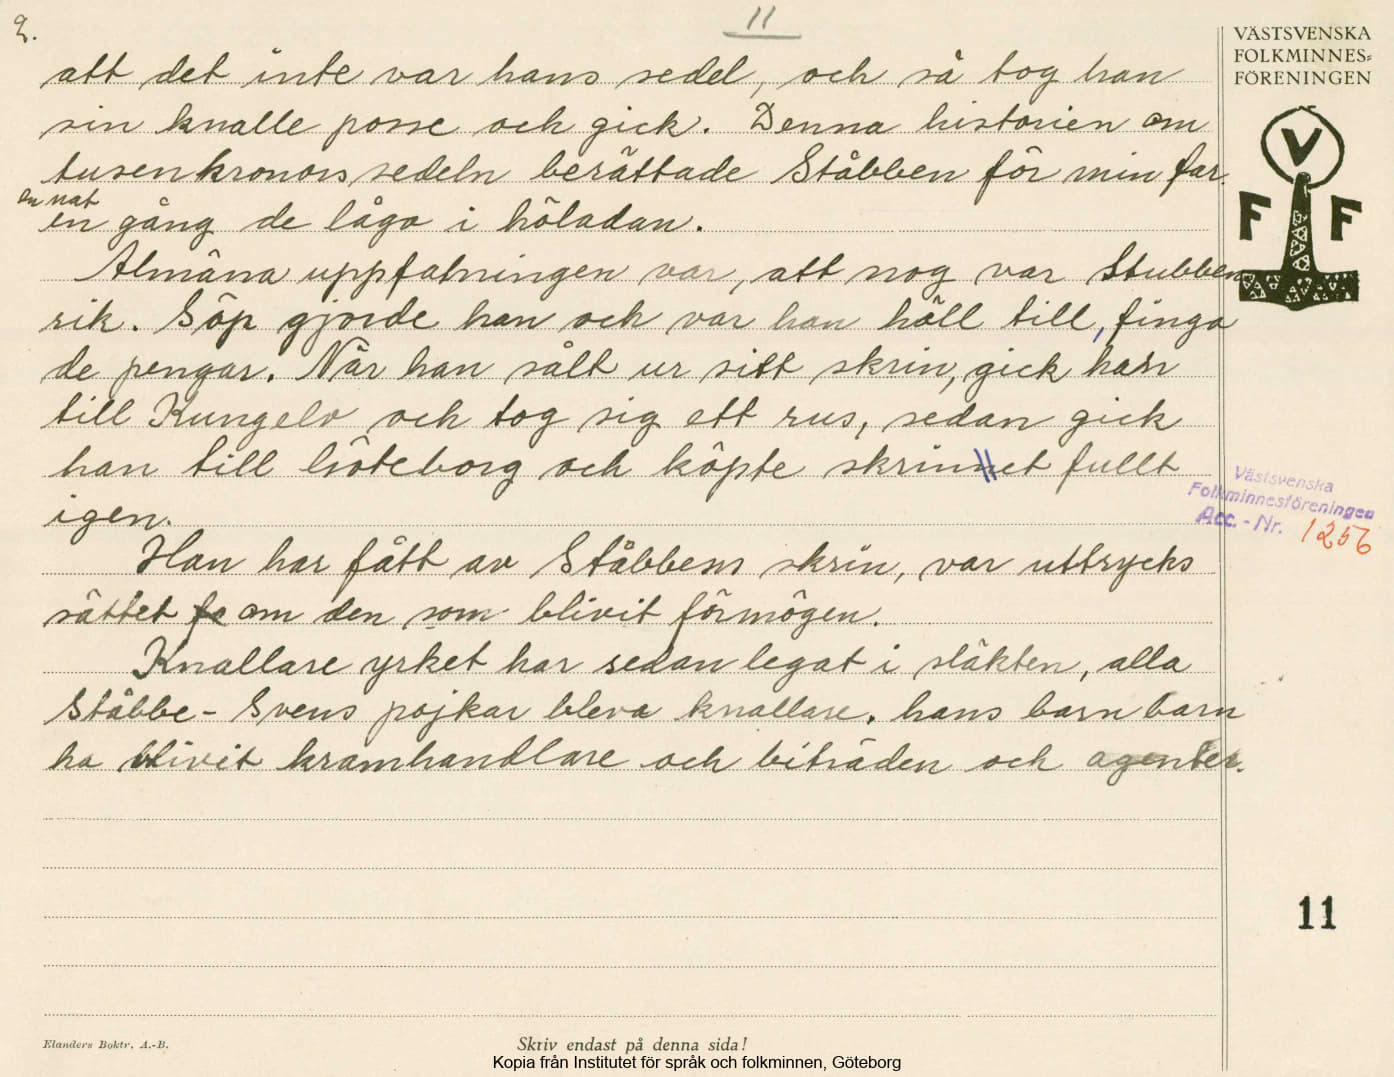 2.
11
VÄSTSVENSKA
FOLKMINNES-
FÖRENINGEN
V
F F
att det inte var hans sedel, och så tog han
sin knalle posse och gick. Denna historien om
tusenkronorssedeln berättade Ståbben för min far.
en nat
en gång de lågo i höladan.
Almäna uppfatningen var, att nog var Stubben
rik. Söp gjorde han och var han höll till, finga
de pengar. När han sålt ur sitt skrin, gick han
till Kungelv och tog sig ett rus, sedan gick
han till Göteborg och köpte skrinnet fullt
igen.
Västsvenska
Folkminnesföreningen
Acc. - Nr. 1256
Han har fått av Ståbbens skrin, var uttrycks
sättet om den som blivit förmögen.
Knallare yrket har sedan legat i släkten, alla
Ståbbe - Svens pojkar bleva knallare, hans barn barn
ha blivit kramhandlare och biträden och agenter.
11
Elanders Boktr. A.-B.
Skriv endast på denna sida!
Kopia från Institutet för språk och folkminnen, Göteborg